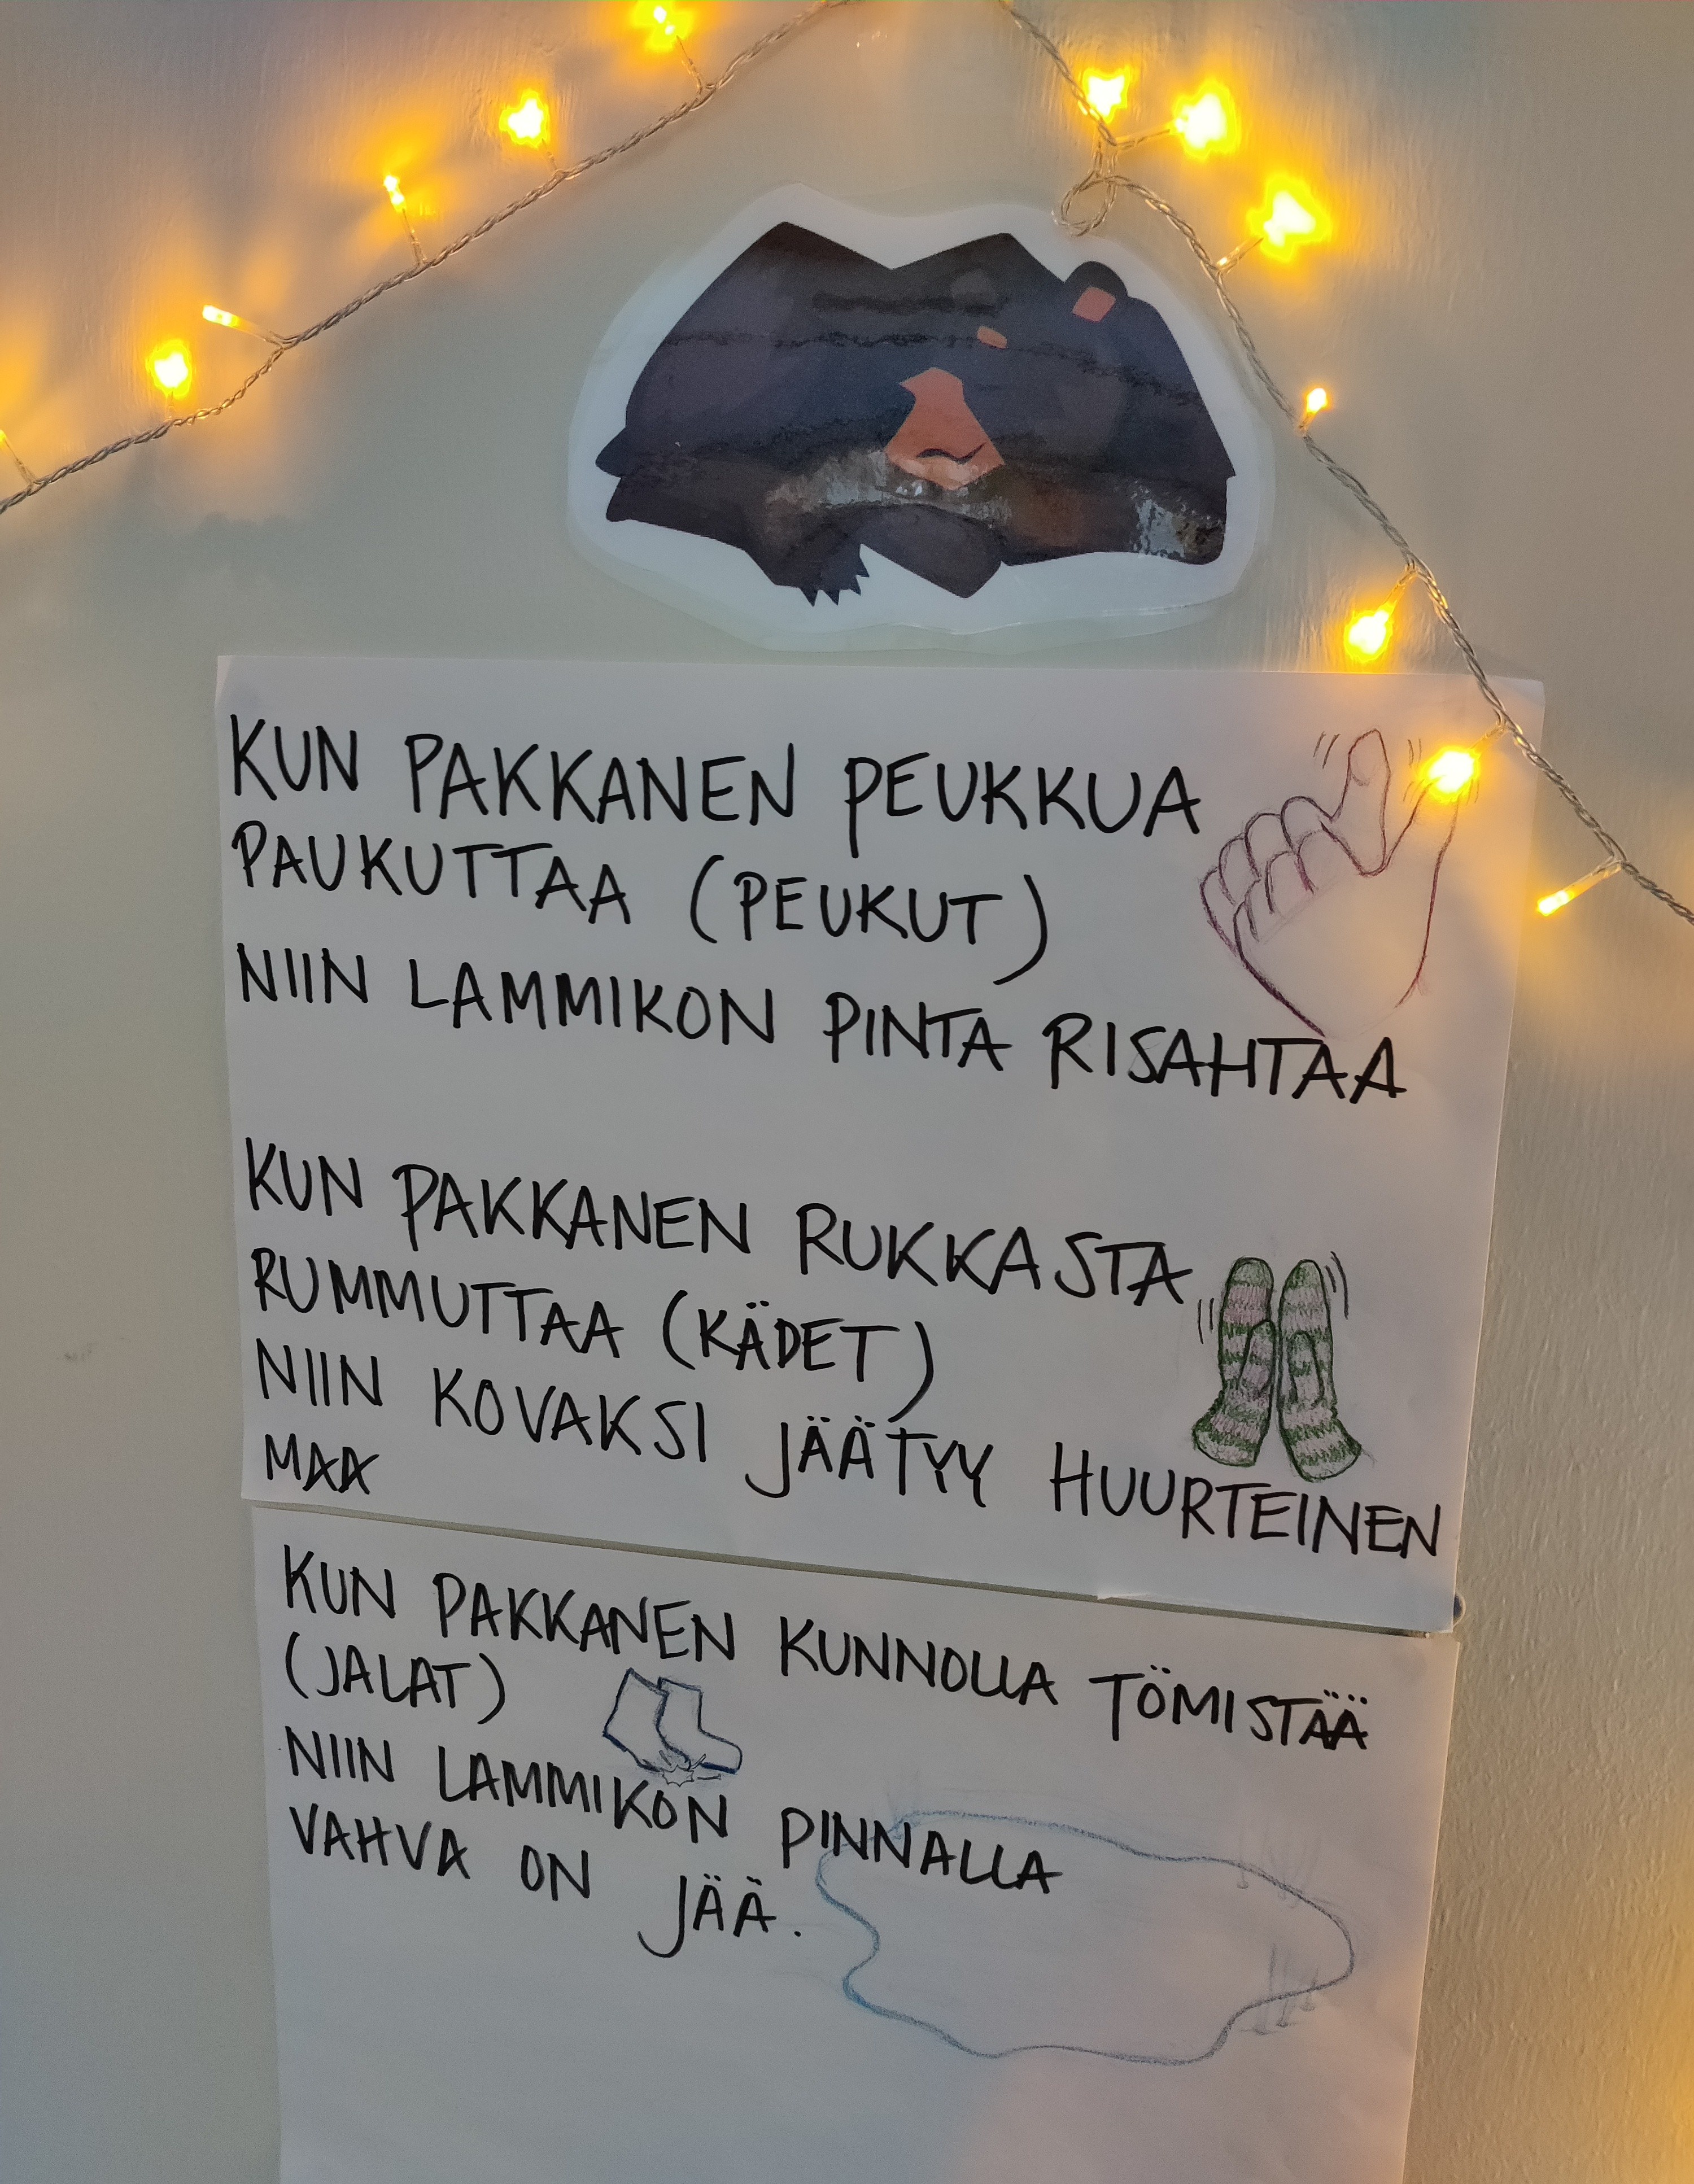 KUN PAKKANEN PEUKKUA
PAUKUTTAA (PEUKUT)
NIIN LAMMIKON PINTA RISAHTAA
KUN PAKKANEN RUKKASTA
RUMMUTTAA (KÄDET)
NIIN KOVAKSI JÄÄTYY HUURTEINEN
MAA
KUN PAKKANEN KUNNOLLA TÖMISTÄÄ
(JALAT)
NIIN LAMMIKON PINNALLA
VAHVA ON JÄÄ.